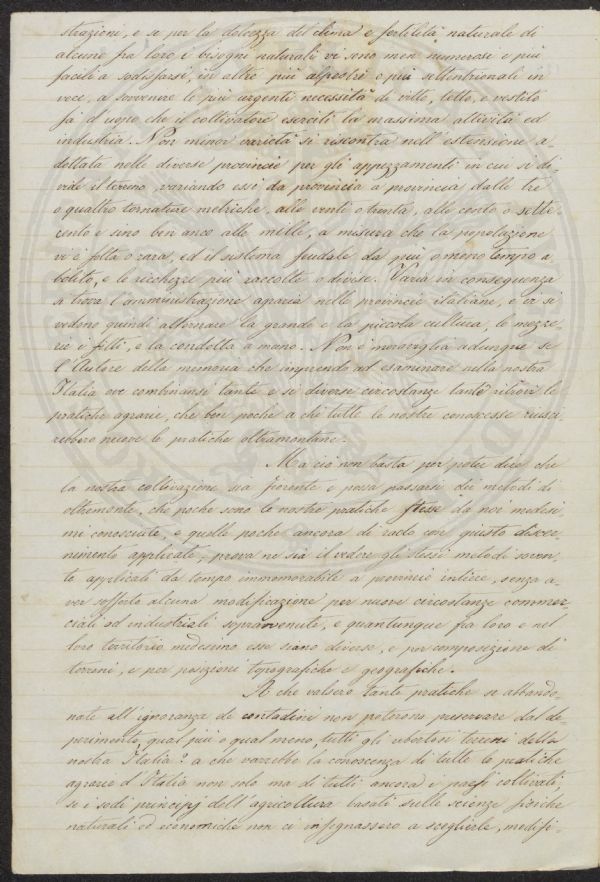 strazioni, e se per la dolcezza del clima e fertilità naturale di
alcune fra loro i bisogni naturali vi sono men numerosi e più
facili a sodisfarsi, in altre più alpestri o più settentrionali in
vece, a sovvenire le più urgenti necessità di vitto, tetto, e vestito
fa d'uopo che il coltivatore eserciti la massima attività ed
industria. Non minor varietà si riscontra nell'estensione a-
dottata nelle diverse provincie per gli appezzamenti in cui si di-
vide il terreno, variando essi da provincia a provincia dalle tre
o quattro tornature metriche, alle venti o trenta, alle cento o sette-
cento e sino ben anco alle mille, a misura che la popolazione
vi è folta o rara, ed il sistema feudale da più o meno tempo a-
bolito, e le ricchezze più raccolte o divise. Varia in conseguenza
si trova l'amministrazione agraria nelle provincie italiane, e vi si
vedono quindi alternare la grande e la piccola cultura, le mezze-
rie i fitti, e la condotta a mano. Non è meraviglia adunque se
l'Autore della memoria che imprendo ad esaminare nella nostra
Italia ove combinansi tante e sì diverse circostanze tante ritrovi le
pratiche agrarie, che ben poche a chi tutte le nostre conoscesse riusci-
rebbero nuove le pratiche oltramontane.
Ma ciò non basta per poter dire che
la nostra coltivazione sia fiorente e possa passarsi dei metodi di
oltremonte, che poche sono le nostre pratiche stesse da noi medesi-
mi conosciute, e quelle poche ancora di rado con giusto discer-
nimento applicate, prova ne sia il vedere gli stessi metodi
applicati da tempo immemorabile a provincie intiere, senza a-
ver sofferto alcuna modificazione per nuove circostanze commer-
ciali od industriali sopravvenute, e quantunque fra loro e nel
loro territorio medesimo esse siano diverse, e per composizione di
terreni, e per posizioni topografiche e geografiche.
A che valsero tante pratiche se abbando-
nate all'ignoranza de contadini non poterono preservare dal de-
perimento, qual più e qual meno, tutti gli ubertosi terreni della
nostra Italia? a che varrebbe la conoscenza di tutte le pratiche
agrarie d'Italia non solo ma di tutti ancora i paesi coltivati,
se i sodi principj dell'agricoltura basati sulle scienze fisiche
naturali ed economiche non ci insegnassero a sceglierle, modifi-